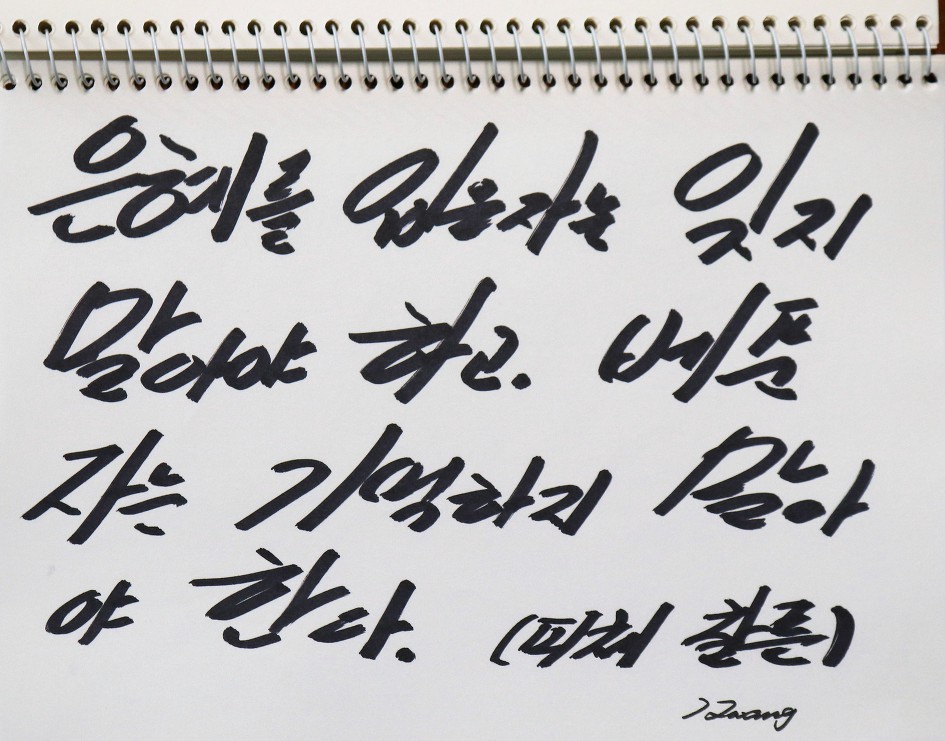 은혜를 입은자는 잊지
말아야 하고. 베푼
자는 기억하지 말아
야 한다. (피쳐 찰른)